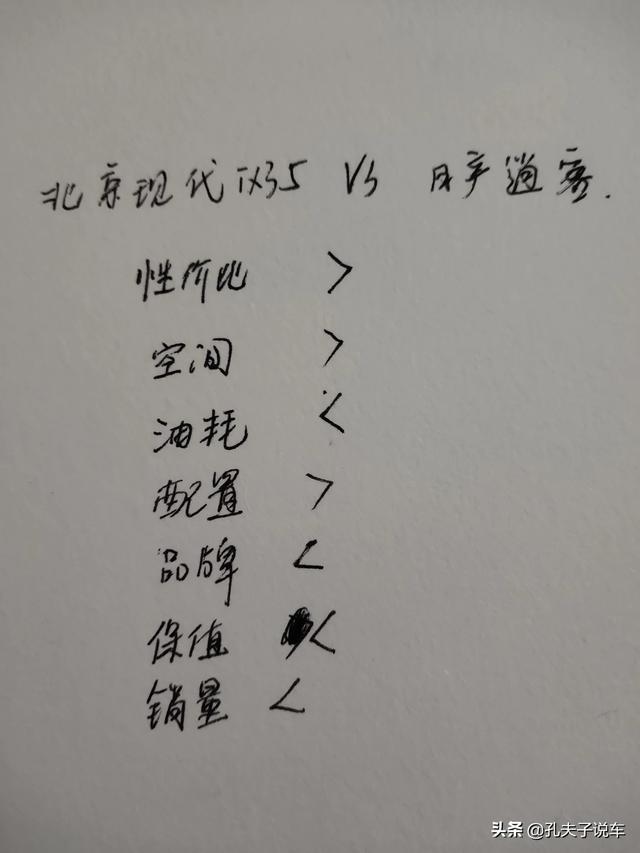 北京现代ix35 VS 日产逍客.
性价比 >
空间 >
油耗 <
配置 >
品牌 <
保值 <
销量 <
头条 @孔夫子说车